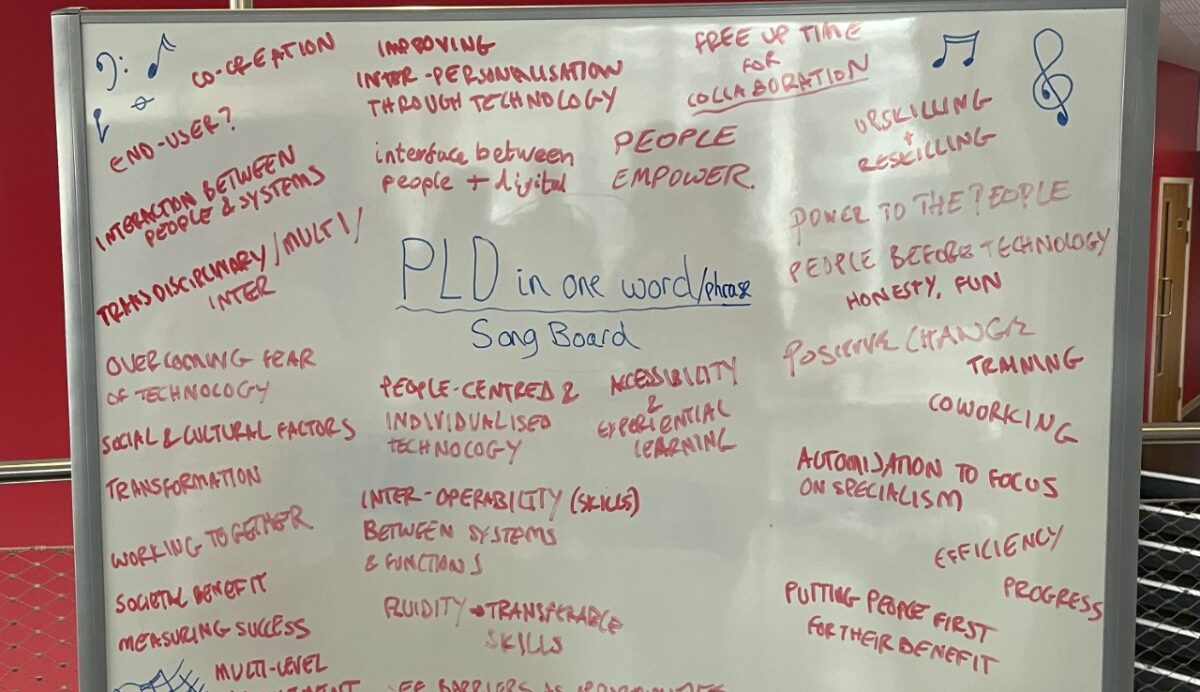 CO-CREATION
END-USER?
INTERACTION BETWEEN
PEOPLE & SYSTEMS
TRANSDISCIPLINARY/MULTI/
INTER
OVERCOMING FEAR
OF TECHNOLOGY
SOCIAL & CULTURAL FACTORS
TRANSFORMATION
WORKING TOGETHER
SOCIETAL BENEFIT
MEASURING SUCCESS
MULTI-LEVEL
IMPROVING
INTER-PERSONALISATION
THROUGH TECHNOLOGY
interface between
people + digital
FREE UP TIME
FOR
COLLABORATION
PEOPLE
EMPOWER.
PLD in one word/phrase
Song Board
PEOPLE-CENTRED &
INDIVIDUALISED
TECHNOLOGY
ACCESSIBILITY
&
EXPERIENTIAL
LEARNING
INTER-OPERABILITY (SKILLS)
BETWEEN SYSTEMS
& FUNCTIONS
FLUIDITY → TRANSFERABLE
SKILLS
BARRIERS AS
UPSKILLING
+
RESKILLING
POWER TO THE PEOPLE
PEOPLE BEFORE TECHNOLOGY
HONESTY, FUN
POSITIVE CHANGE
TRAINING
COWORKING
AUTOMISATION TO FOCUS
ON SPECIALISM
EFFICIENCY
PROGRESS
PUTTING PEOPLE FIRST
FOR THEIR BENEFIT